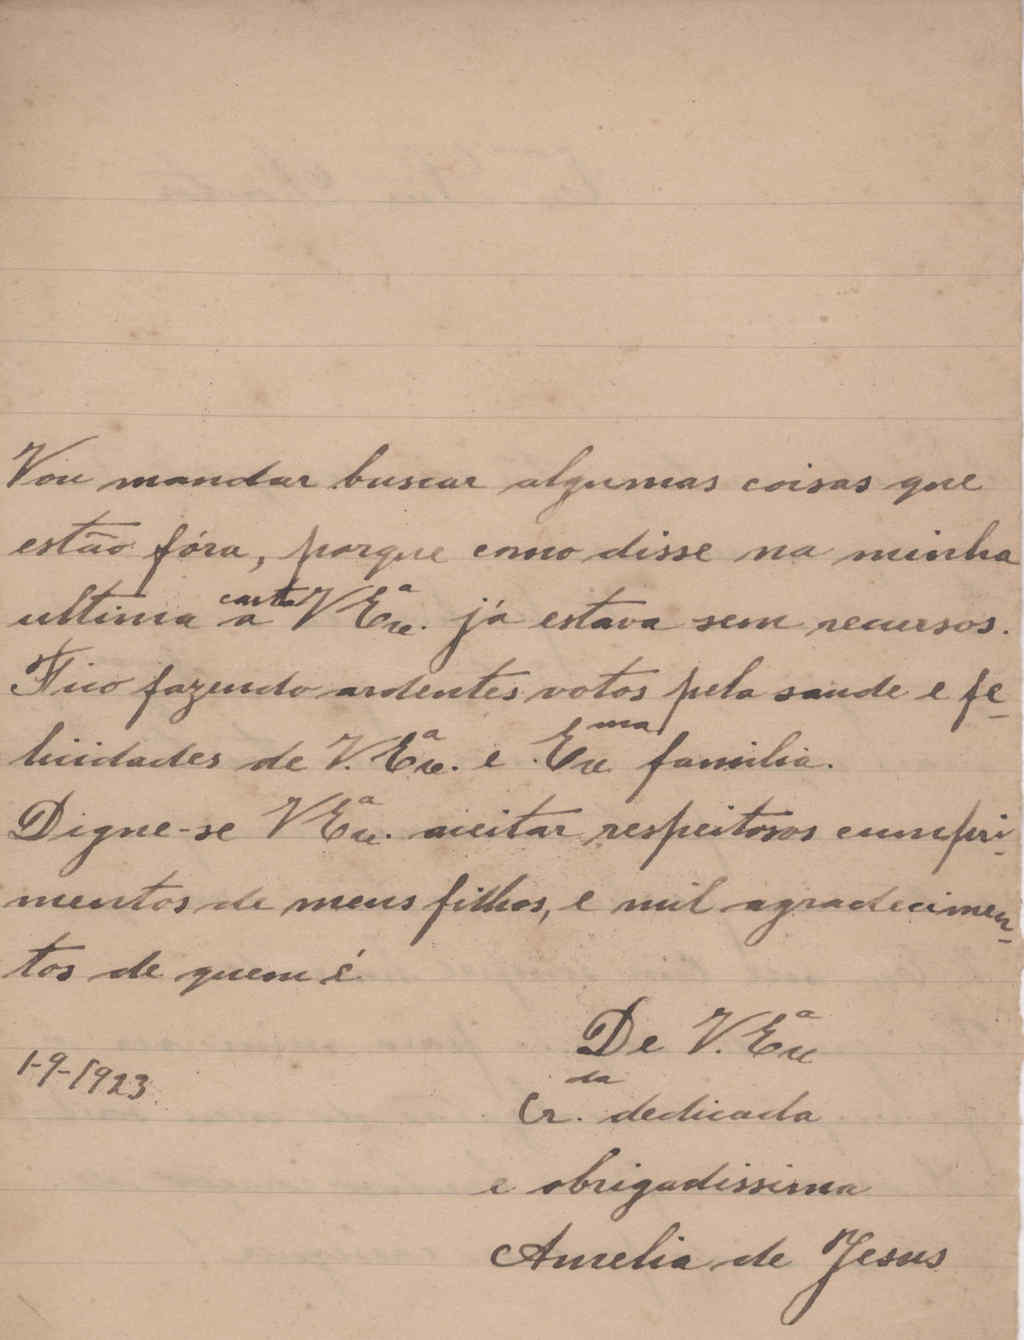 Vou mandar buscar algumas coisas que
estão fóra, porque como disse na minha
ultima carta a V Exª. já estava sem recursos.
Fico fazendo ardentes votos pela saude e fe-
licidades de V. Exª. e Exma familia.
Digne-se V Exª. aceitar respeitosos cumpri-
mentos de meus filhos, e mil agradecimen-
tos de quem é
De V. Exª
1-9-1923
Cr.da dedicada
e obrigadissima
Amelia de Jesus